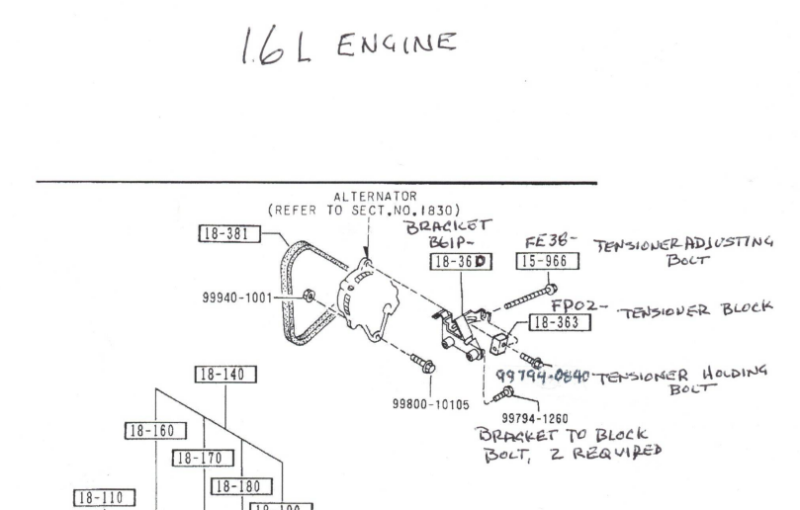 1.6L ENGINE
ALTERNATOR
(REFER TO SECT.NO.1830)
18-381
BRACKET
B61P-
18-36D
FE3B-
15-966
TENSIONER ADJUSTING
BOLT
99940-1001
FP02-
18-363
TENSIONER BLOCK
99794-0840
TENSIONER HOLDING
BOLT
18-140
99800-10105
99794-1260
BRACKET TO BLOCK
BOLT, 2 REQUIRED
18-160
18-170
18-180
18-110